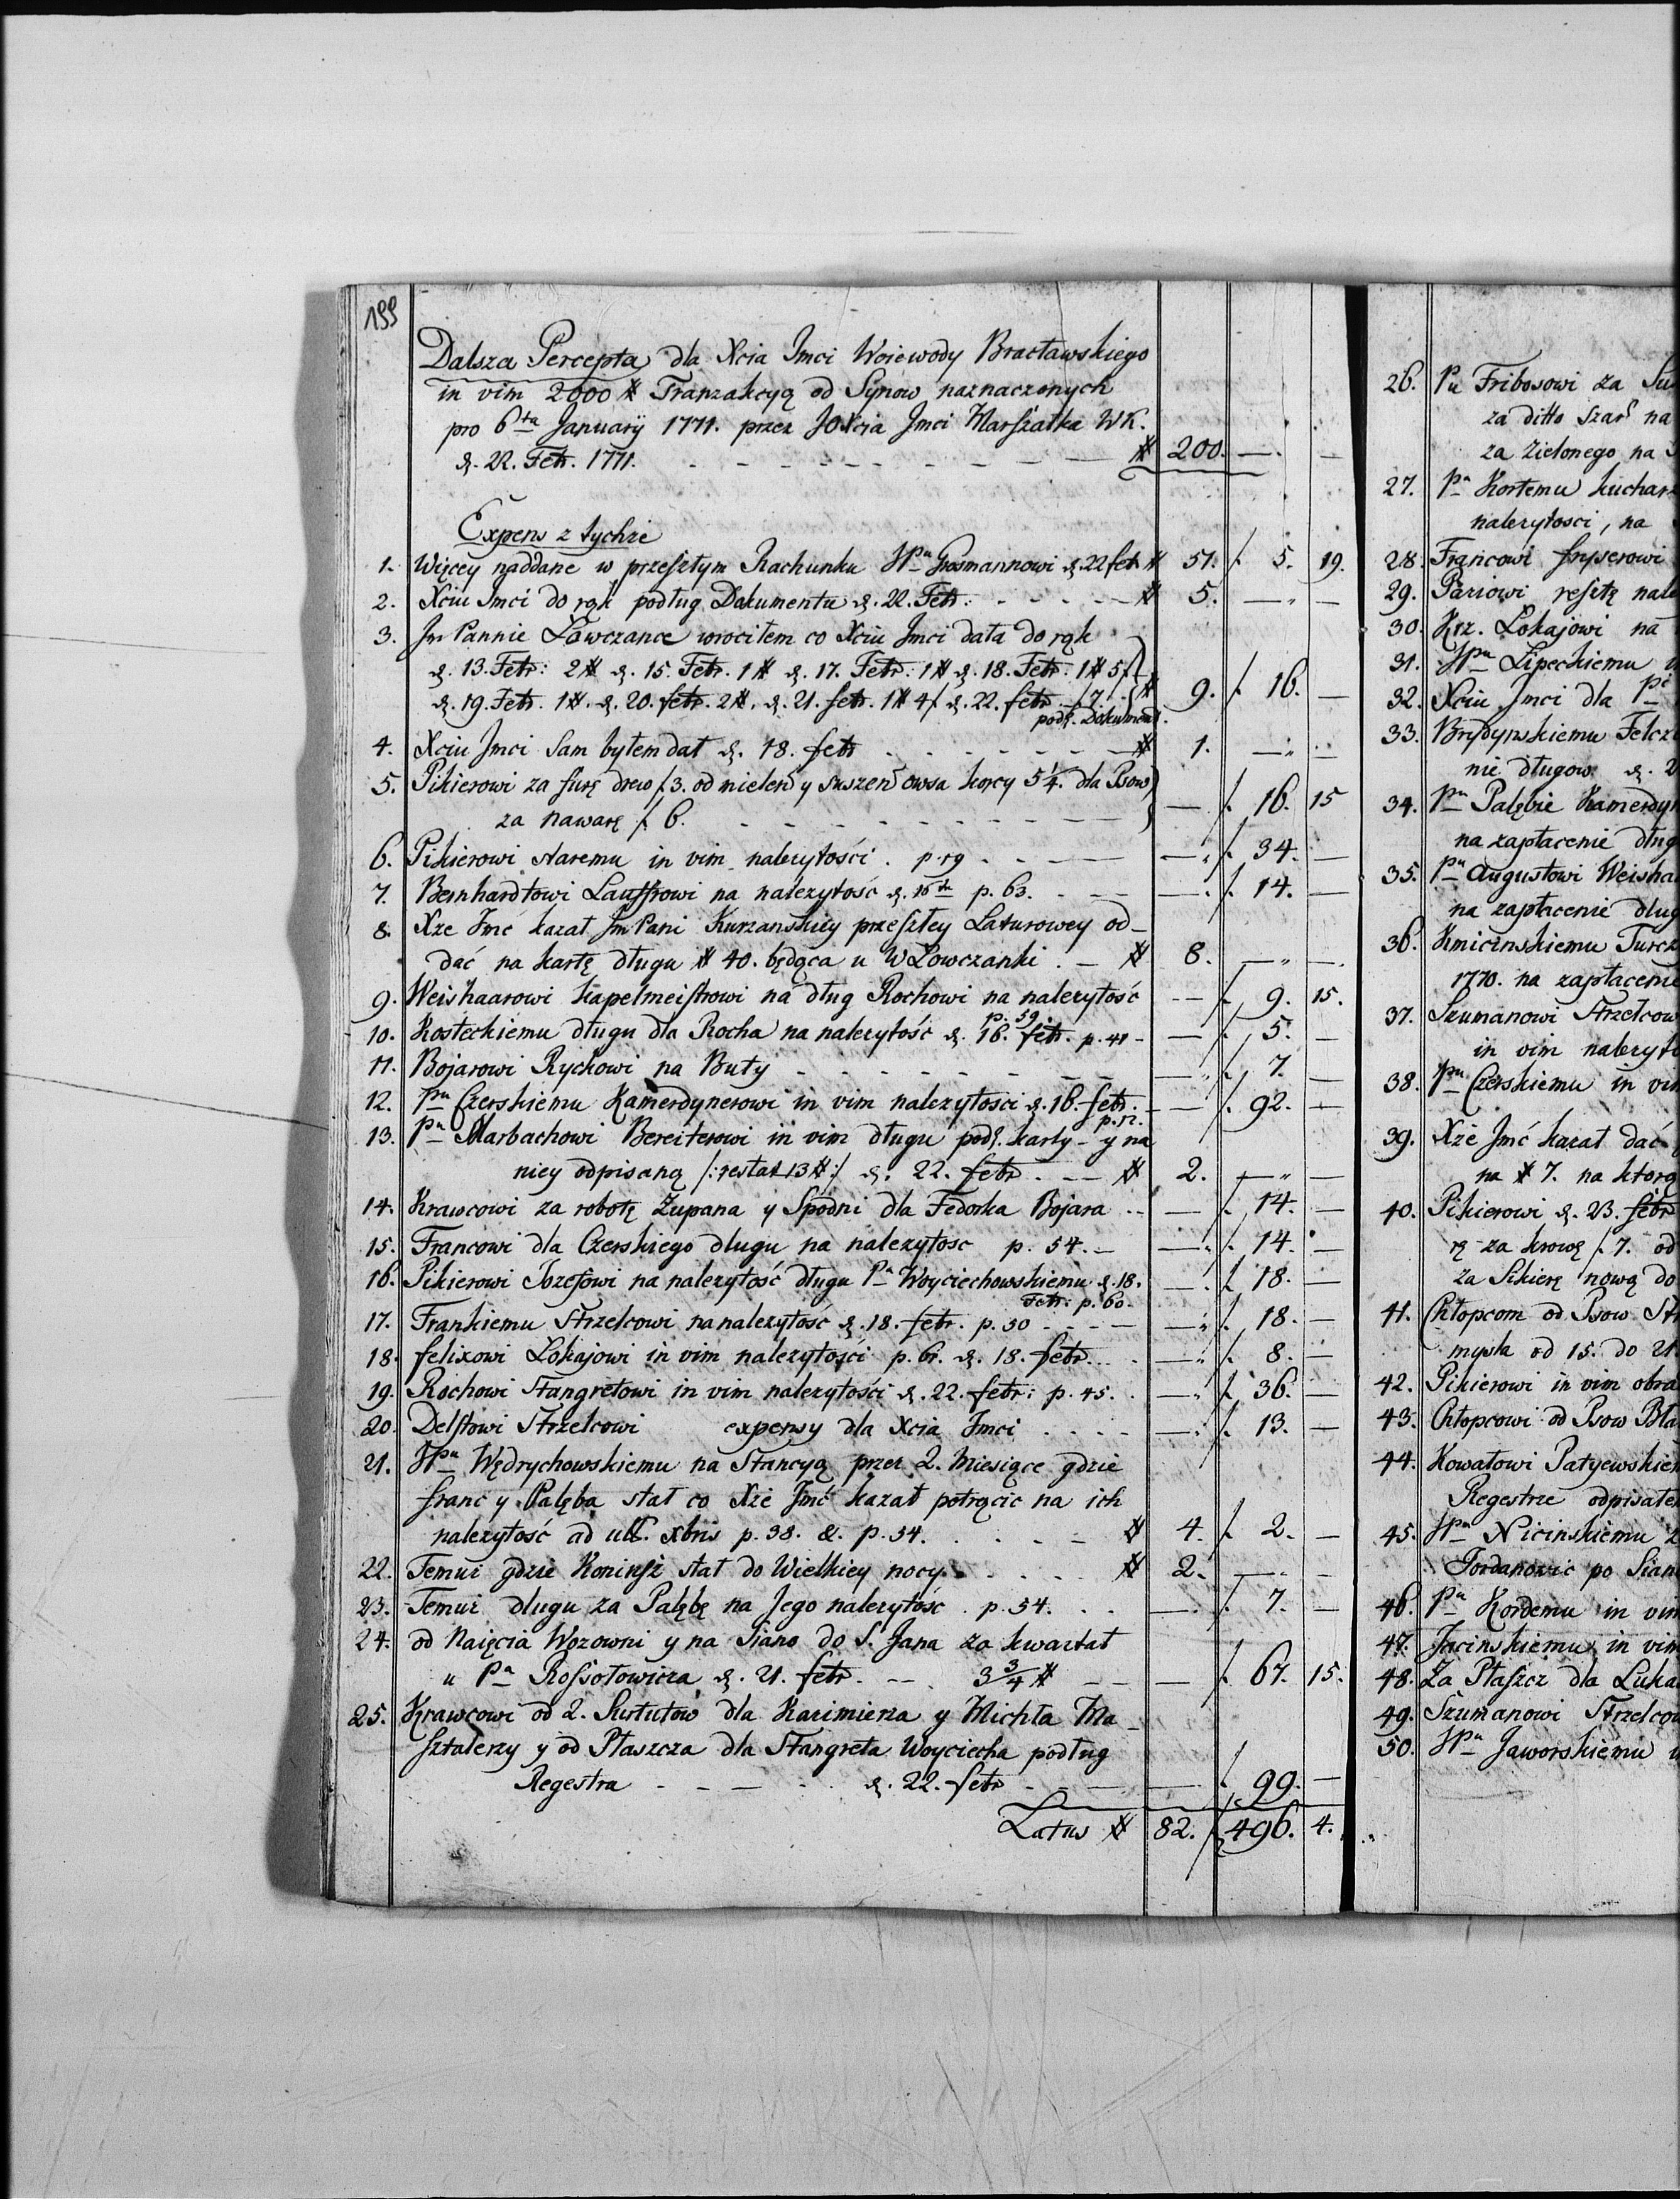 199
Dalsza Percepta dla Xcia Jmci Woiewody Bracławskiego
in vim 2000 # Tranzakcyą od Synow naznaczonych
pro 6ta Januarij 1771. przez JOXcia Jmci Marszałka WK.
d. 22. Febr. 1771. # 200. — —
Expens z tychże
1. Więcey naddane w przeszłym Rachunku JPu Grosmannowi d. 22 febr # 51. f. 5. 19.
2. Xciu Jmci do rąk podług Dokumentu d. 22. Febr. # 5. — —
3. Jm Pannie Łowczance wrociłem co Xciu Jmci dała do rąk
d. 13. Febr: 2# d. 15. Febr. 1# d. 17. Febr: 1# d. 18. Febr: 1# 5f
d. 19. Febr. 1#. d. 20. febr. 2#. d. 21. febr. 1# 4f d. 22. febr f 7. # 9. f. 16. —
podł. Dokument.
4. Xciu Jmci sam byłem dał d. 18. febr # 1. — —
5. Pikierowi za furę drew f. 3. od mielen y suszen owsa korcy 5 1/4. dla Psow
za nawarę f. 6. — f. 16. 15
6. Pikierowi staremu in vim należytości. p. 19 — f. 34. —
7. Bernhardtowi Lauffrowi na należytość d. 16ta p. 63. — f. 14. —
8. Xże Jmć kazał Jm Pani Kurzanskiey przeszłey Laturowey od-
dać na kartę długu # 40. będąca u W Łowczanki. — # 8. — —
9. Weishaarowi kapelmeistrowi na dług Rochowi na należytość — f. 9. 15.
p. 59.
10. Kosteckiemu długu dla Rocha na należytość d. 16. febr. p. 41 — f. 5. —
11. Bojarowi Rychowi na Buty — f. 7. —
12. Pu Czerskiemu Kamerdynerowi in vim należytosci d. 16. febr. — f. 92. —
p. 12.
13. Pu Marbachowi Bereiterowi in vim długu podł. karty - y na
niey odpisaną /: restat 13 # :/ d. 22. febr # 2. — —
14. Krawcowi za robotę Żupana y Spodni dla Fedorka Bojara — f. 14. —
15. Francowi dla Czerskiego długu na należytosc p. 54. — f. 14. —
16. Pikierowi Jozefowi na należytość długu Pu Woyciechowskiemu d. 18. — f. 18. —
Febr: p. 60.
17. Frankiemu Strzelcowi na należytość d. 18. febr. p. 30 — f. 18. —
18. felixowi Lokajowi in vim należytości p. 61. d. 18. febr. — f. 8. —
19. Rochowi Stangretowi in vim należytości d. 22. febr: p. 45. — f. 36. —
20. Delftowi Strzelcowi expensy dla Xcia Jmci — f. 13. —
21. JPu Wędrychowskiemu na Stancyą przez 2. Miesiące gdzie
franc y Palęba stał co Xże Jmć kazał potrącic na ich
należytość ad ult. xbris p. 38. &. p. 54. # 4. f. 2. —
22. Temuż gdzie Koninsz stał do Wielkiey nocy # 2. — —
23. Temuż długu za Palębę na Jego należytość p. 54. — f. 7. —
24. od Naięcia Wozowni y na Siano do S. Jana za kwartał
u Pa Rossołowicza d. 21. febr. — 3 3/4 # — f. 67. 15.
25. Krawcowi od 2. Surtutow dla Kazimierza y Michła Ma-
sztalerzy y od Płaszcza dla Stangreta Woyciecha podług
Regestra d. 22. febr — f. 99. —
Latus # 82. f 496. 4.
26. Pu Fribosowi za Su
za ditto szar na
za Zielonego na
27. Pu Kortemu kuchar
należytosci, na
28. Francowi fryserowi
29. Pariowi resztę nale
30. Krz. Lokajowi na
31. JPu Lipeckiemu
32. Xciu Jmci dla
33. Brydynskiemu Felcz
nie długow. d. 2
34. Pu Palębie Kamerdyn
na zapłacenie dług
35. Pu Augustowi Weisha
na zapłacenie dług
36. Kmicinskiemu Turcz
1770. na zapłacenie
37. Szumanowi Strzelcow
in vim należyto
38. Pu Czerskiemu in vim
39. Xże Jmć kazał dać
na # 7. na ktorą
40. Pikierowi d. 23. febr
rę za krowę f. 7. od
za Sikierę nową do
41. Chłopcom od Psow
mysła od 15. do 21
42. Pikierowi in vim obra
43. Chłopcowi od Psow Bła
44. Kowalowi Patyewskiem
Regestrze odpisałe
45. JPu Nicinskiemu z
Jordanowic po Sian
46. Pu Kordemu in vim
47. Jacinskiemu in vim
48. Za Płaszcz dla Luka
49. Szumanowi Strzelcow
50. JPu Jaworskiemu